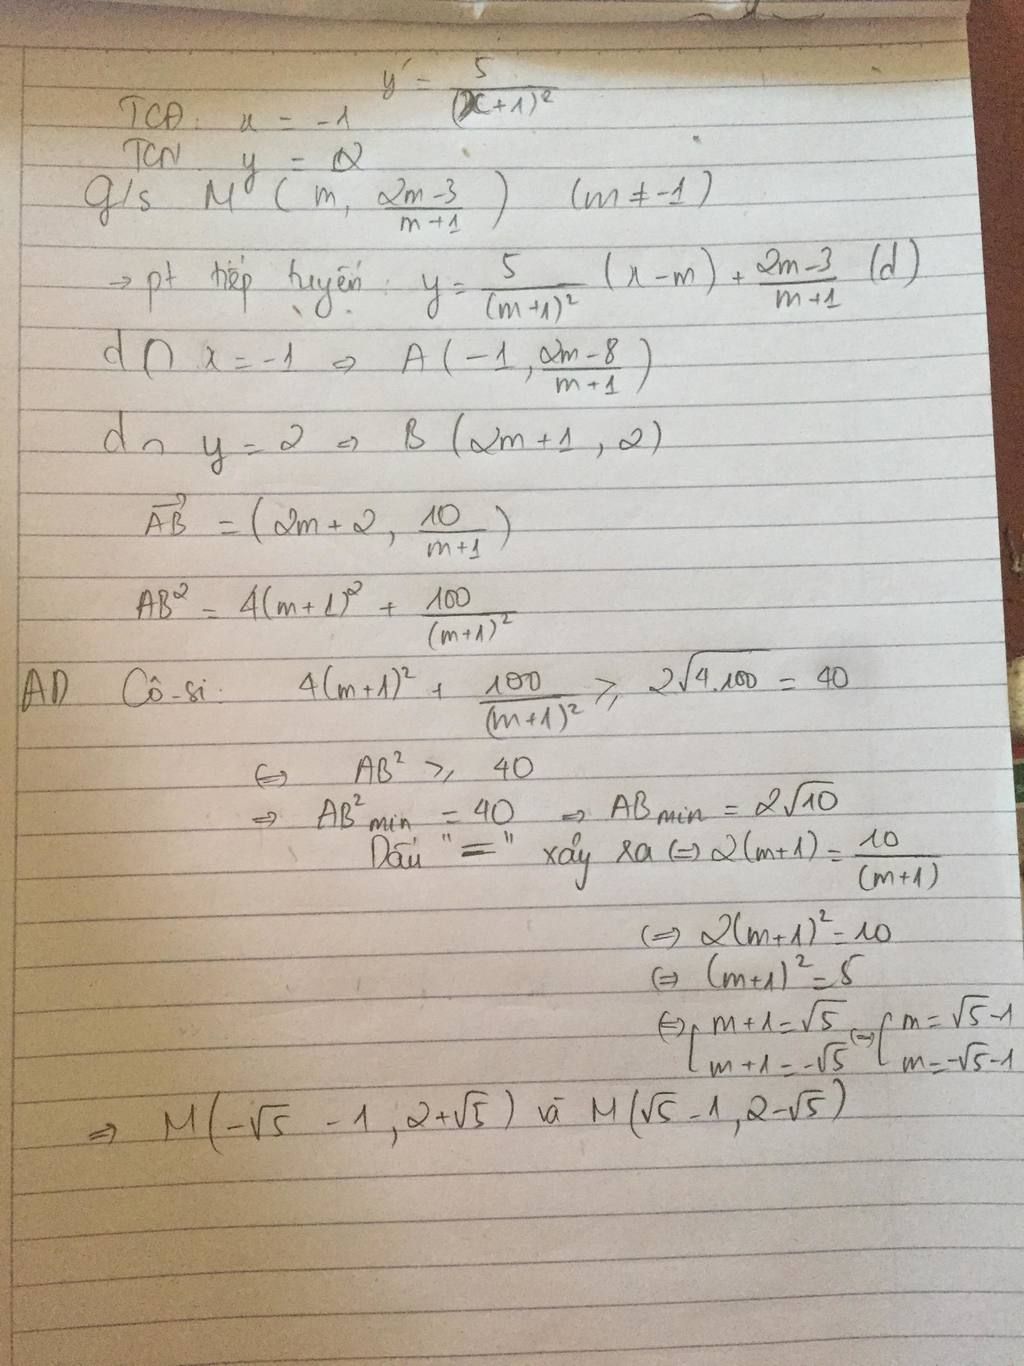 y' = 5/(x+1)²
TCĐ: x = -1
TCN y = 2
G/s M(m, (2m-3)/(m+1)) (m ≠ -1)
→ pt tiếp tuyến: y = 5/(m+1)² (x-m) + (2m-3)/(m+1) (d)
d ∩ x = -1 ⇒ A(-1, (2m-8)/(m+1))
d ∩ y = 2 ⇒ B(2m+1, 2)
AB⃗ = (2m+2, 10/(m+1))
AB² = 4(m+1)² + 100/(m+1)²
AD Cô-si: 4(m+1)² + 100/(m+1)² ⩾ 2√4.100 = 40
⇔ AB² ⩾ 40
⇒ AB²min = 40 ⇒ ABmin = 2√10
Dấu "=" xảy ra ⇔ 2(m+1) = 10/(m+1)
⇔ 2(m+1)² = 10
⇔ (m+1)² = 5
⇔ [ m+1 = √5 ⇔ [ m = √5-1
m+1 = -√5 m = -√5-1
⇒ M(-√5 -1, 2+√5) và M(√5-1, 2-√5)